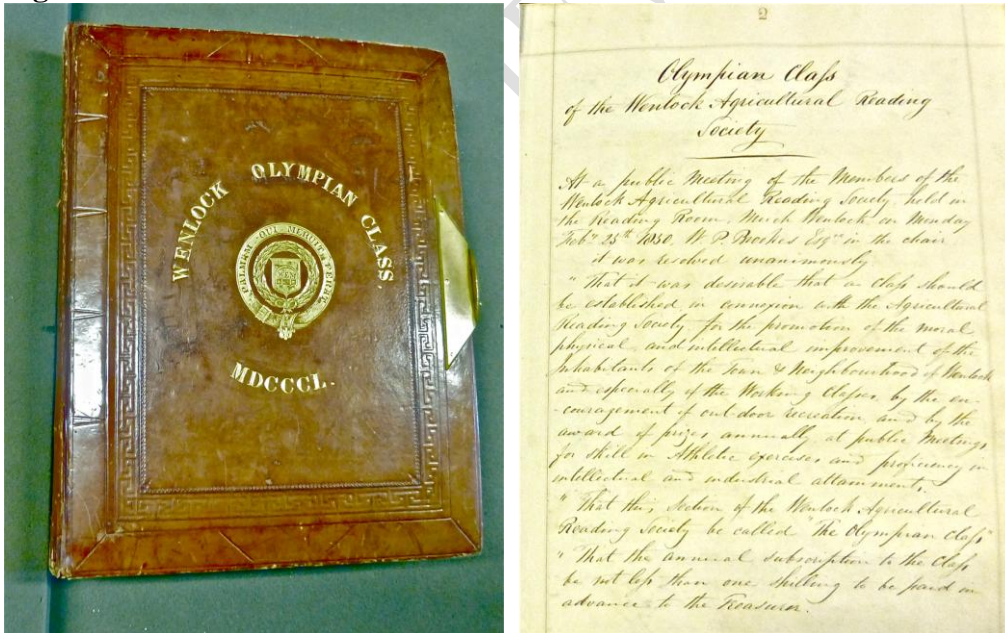 WENLOCK OLYMPIAN CLASS.
PALMAM QUI MERUIT FERAT
MDCCCL.
2
Olympian Claſs
of the Wenlock Agricultural Reading
Society
At a public Meeting of the Members of the
Wenlock Agricultural Reading Society, held in
the Reading Room, Much Wenlock on Monday
Feby 25th 1850. W. P. Brookes Esqre in the chair
it was resolved unanimously
"That it was desirable that a Claſs should
be established in connexion with the Agricultural
Reading Society for the promotion of the moral
physical and intellectual improvement of the
Inhabitants of the Town & Neighbourhood of Wenlock
and especially of the Working Claſses, by the en-
-couragement of out-door recreation and by the
award of prizes annually at public Meetings
for skill in Athletic exercises and proficiency in
intellectual and industrial attainments.
"That this Section of the Wenlock Agricultural
Reading Society be called "The Olympian Claſs"
"That the annual subscription to the Claſs
be not leſs than one shilling to be paid in
advance to the Treasurer.